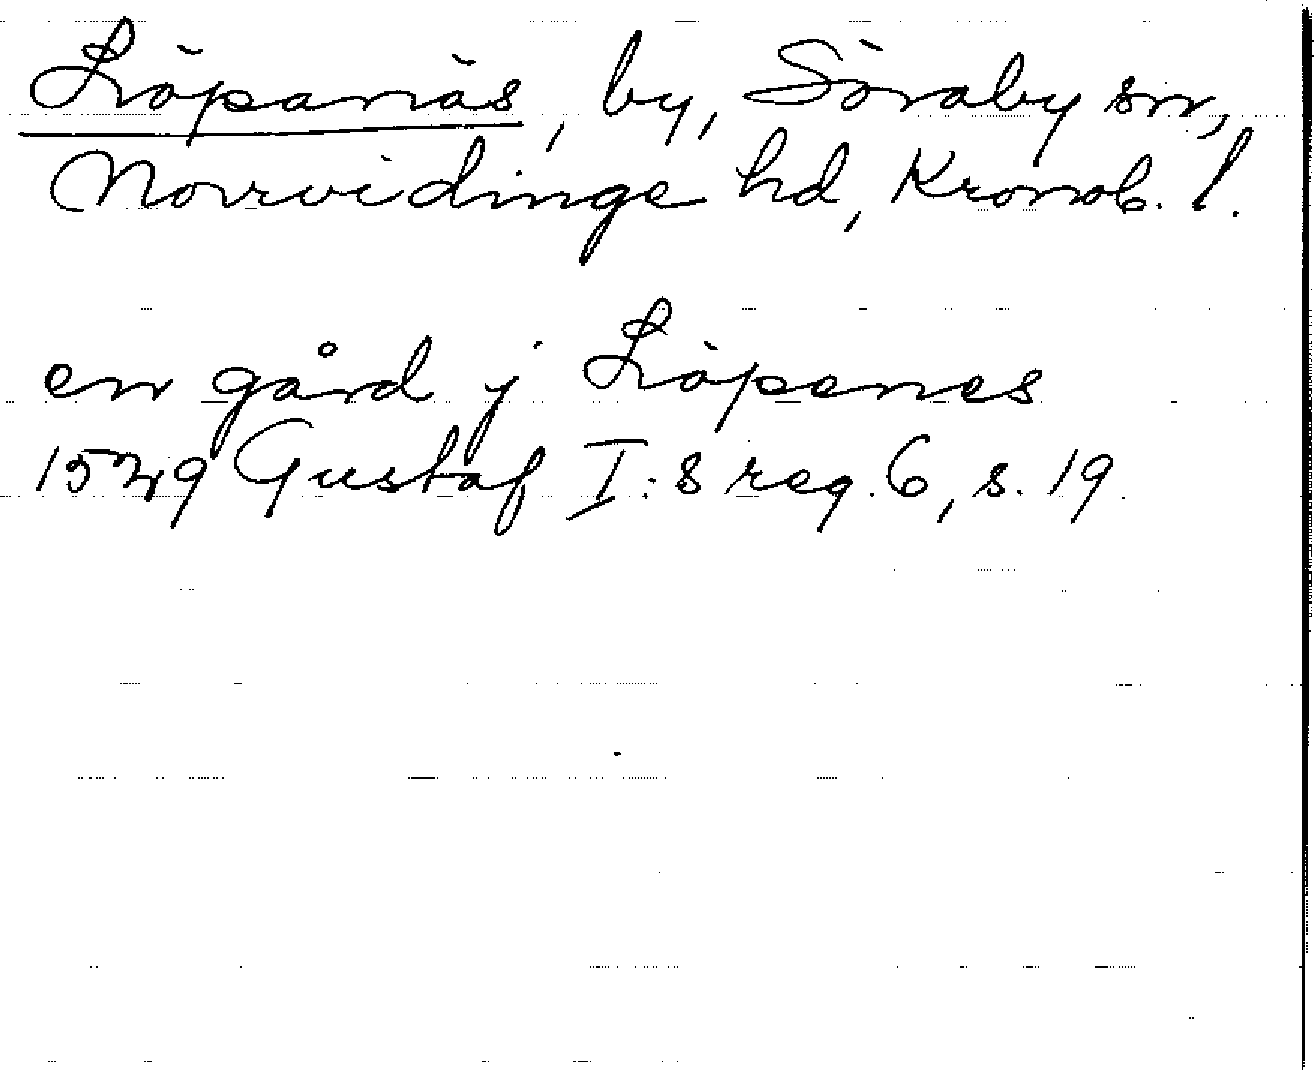 Löpanäs, by, Söraby sn,
Norrvidinge hd, Kronob. l.
en gård j Löpenes
1529 Gustaf I:s reg. 6, s. 19.